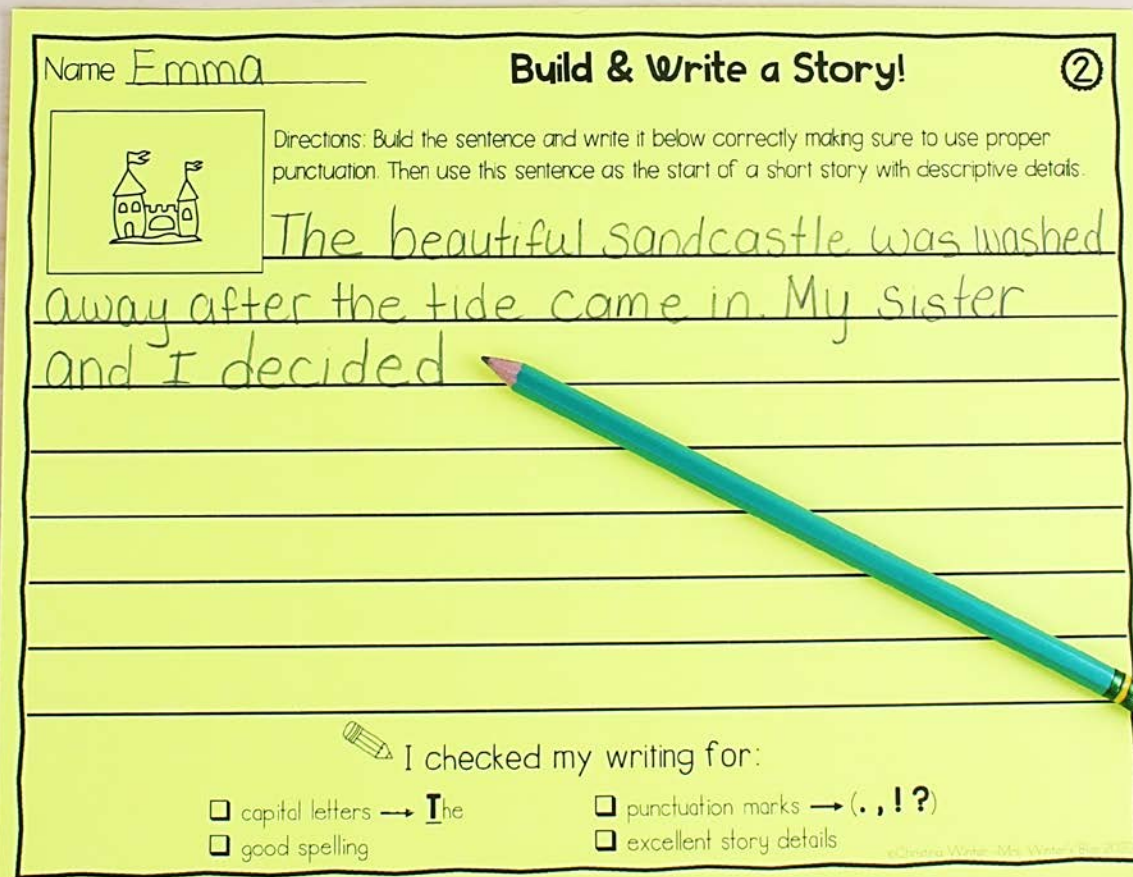 Name Emma
Build & Write a Story!
2
Directions: Build the sentence and write it below correctly making sure to use proper
punctuation. Then use this sentence as the start of a short story with descriptive details.
The beautiful sandcastle was washed
away after the tide came in. My sister
and I decided
I checked my writing for:
capital letters → The
punctuation marks → (. , ! ?)
good spelling
excellent story details